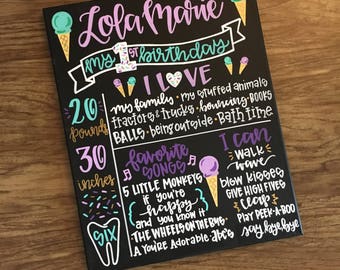 Lola Marie
my 1st birthday
I LOVE
my family · my stuffed animals
tractors & trucks · bouncing · BOOKS
BALLS · being outside · Bath time
20
pounds
30
inches
SIX
favorite
SONGS
5 LITTLE MONKEYS
if you're
happy
and you know it
THE WHEELS ON THE BUS
You're Adorable abc's
I can
WALK
wave
blow kisses
GIVE HIGH FIVES
clap
PLAY PEEK-A-BOO
say bye bye